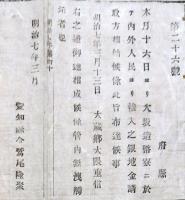 第二十六號
府縣
本月十六日ヨリ大阪造幣寮ニ於
テ內外人民ヨリ輸入之銀地金請
取方相始候條此旨布達候事
明治七年三月十三日　大藏卿大隈重信
右之通御達相成候條管內無洩觸
示者也
明治七年三月　愛知縣令鷲尾隆聚